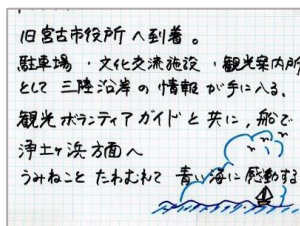 旧宮古市役所へ到着。
駐車場・文化交流施設・観光案内所
として 三陸沿岸の情報が手に入る。
観光ボランティアガイドと共に、船で
浄土ヶ浜方面へ
うみねこと たわむれて 青い海に感動する